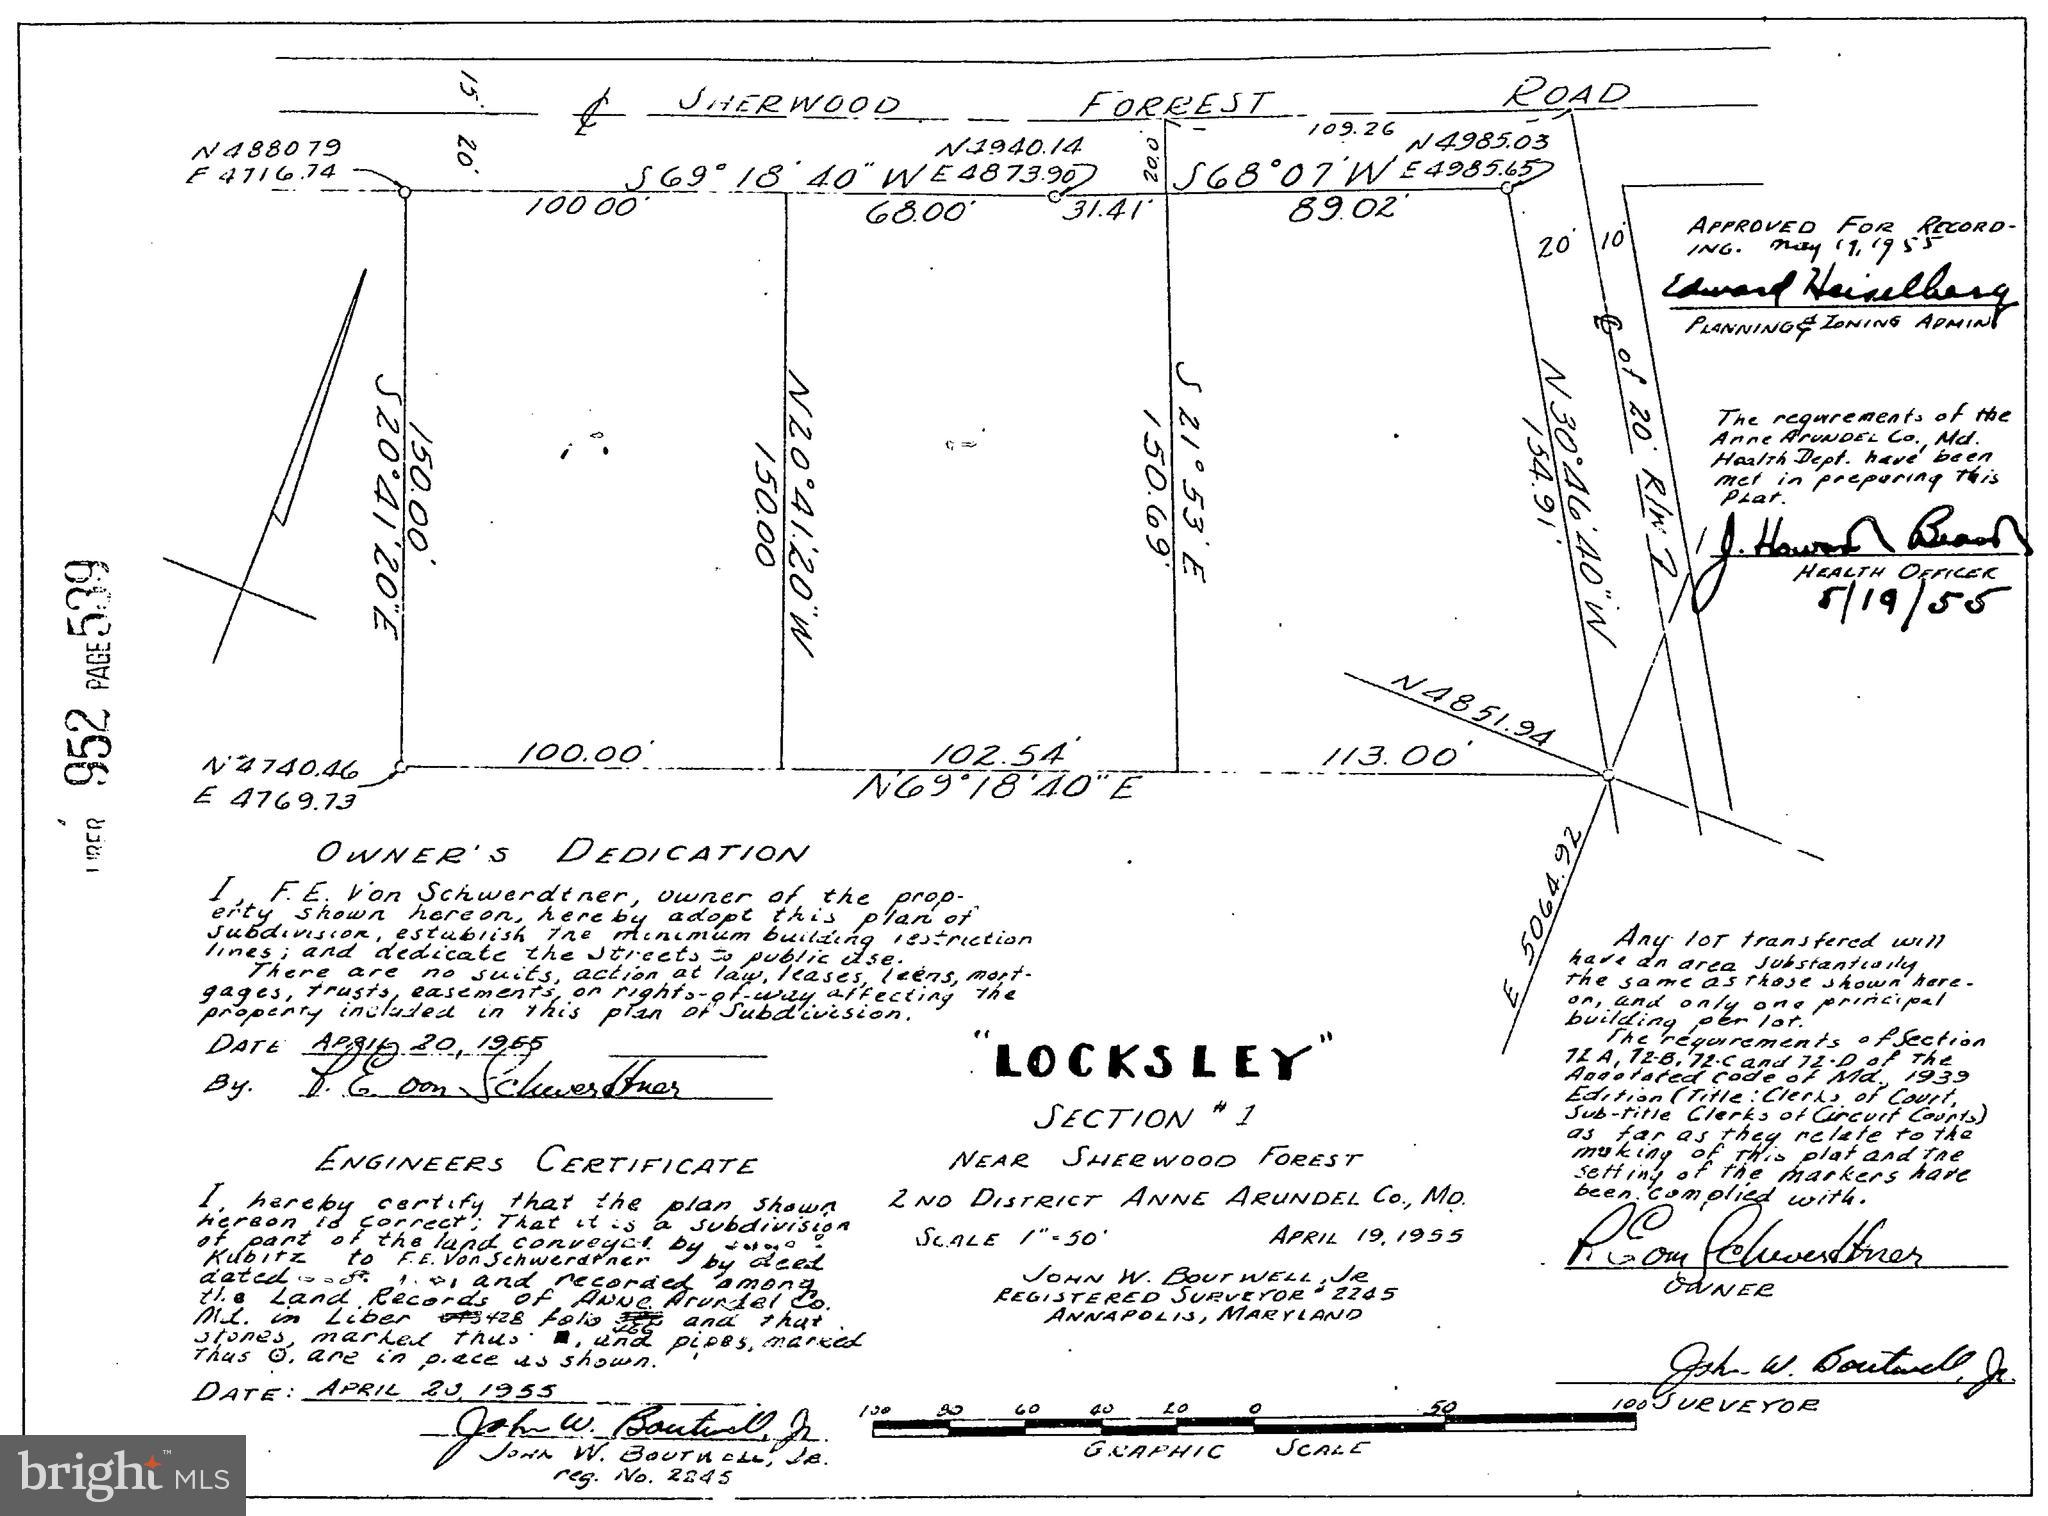 15'
₵ SHERWOOD FORREST ROAD
20'
20.0
109.26
N 488079
E 4716.74
S69° 18' 40" W
N 4940.14
E 4873.90
S68°07' W
N 4985.03
E 4985.65
100.00'
68.00'
31.41'
89.02'
20'
10'
S 20° 41' 20" E
150.00'
N 20° 41' 20" W
150.00
S 21° 53' E
150.69'
N 30° 46' 40" W
154.91'
₵ of 20' R/W
APPROVED FOR RECORD-
ING. May 19, 1955
Edward Heiselberg
PLANNING & ZONING ADMIN
The requrements of the
Anne ARUNDEL Co., Md.
Health Dept. have been
met in preparing this
Plat.
J. Howard Beard
HEALTH OFFICER
5/19/55
LIBER 952 PAGE 539
N 4851.94
N 4740.46
E 4769.73
100.00'
102.54'
N69°18'40" E
113.00'
E 5064.92
OWNER'S DEDICATION
I, F.E. Von Schwerdtner, owner of the prop-
erty shown hereon, hereby adopt this plan of
subdivision, establish the minimum building restriction
lines; and dedicate the streets to public use.
There are no suits, action at law, leases, leens, mort-
gages, trusts, easements, or rights-of-way affecting the
property included in this plan of Subdivision.
DATE APRIL 20, 1955
By. F. E. von Schwerdtner
ENGINEERS CERTIFICATE
I, hereby certify that the plan shown
hereon is correct; That it is a subdivision
of part of the land conveyed by
Kubitz to F.E. Von Schwerdtner by deed
dated and recorded among
the Land Records of Anne Arundel Co.
Md. in Liber 428 folio and that
stones, marked thus ■, and pipes, marked
thus O, are in place as shown.
DATE: APRIL 20, 1955
John W. Boutwell, Jr.
JOHN W. BOUTWELL, JR.
reg. No. 2245
"LOCKSLEY"
SECTION #1
NEAR SHERWOOD FOREST
2ND DISTRICT ANNE ARUNDEL CO., MD.
SCALE 1"=50' APRIL 19, 1955
JOHN W. BOUTWELL, JR
REGISTERED SURVEYOR # 2245
ANNAPOLIS, MARYLAND
100 80 60 40 20 0 50 100
GRAPHIC SCALE
Any lot transfered will
have an area substantially
the same as those shown here-
on, and only one principal
building per lot.
The requirements of Section
72A, 72-B, 72-C and 72-D of the
Annotated Code of Md. 1939
Edition (Title: Clerks of Court,
Sub-title Clerks of Circuit Courts)
as far as they relate to the
making of this plat and the
setting of the markers have
been complied with.
F. E. von Schwerdtner
OWNER
John W. Boutwell, Jr.
SURVEYOR
bright MLS